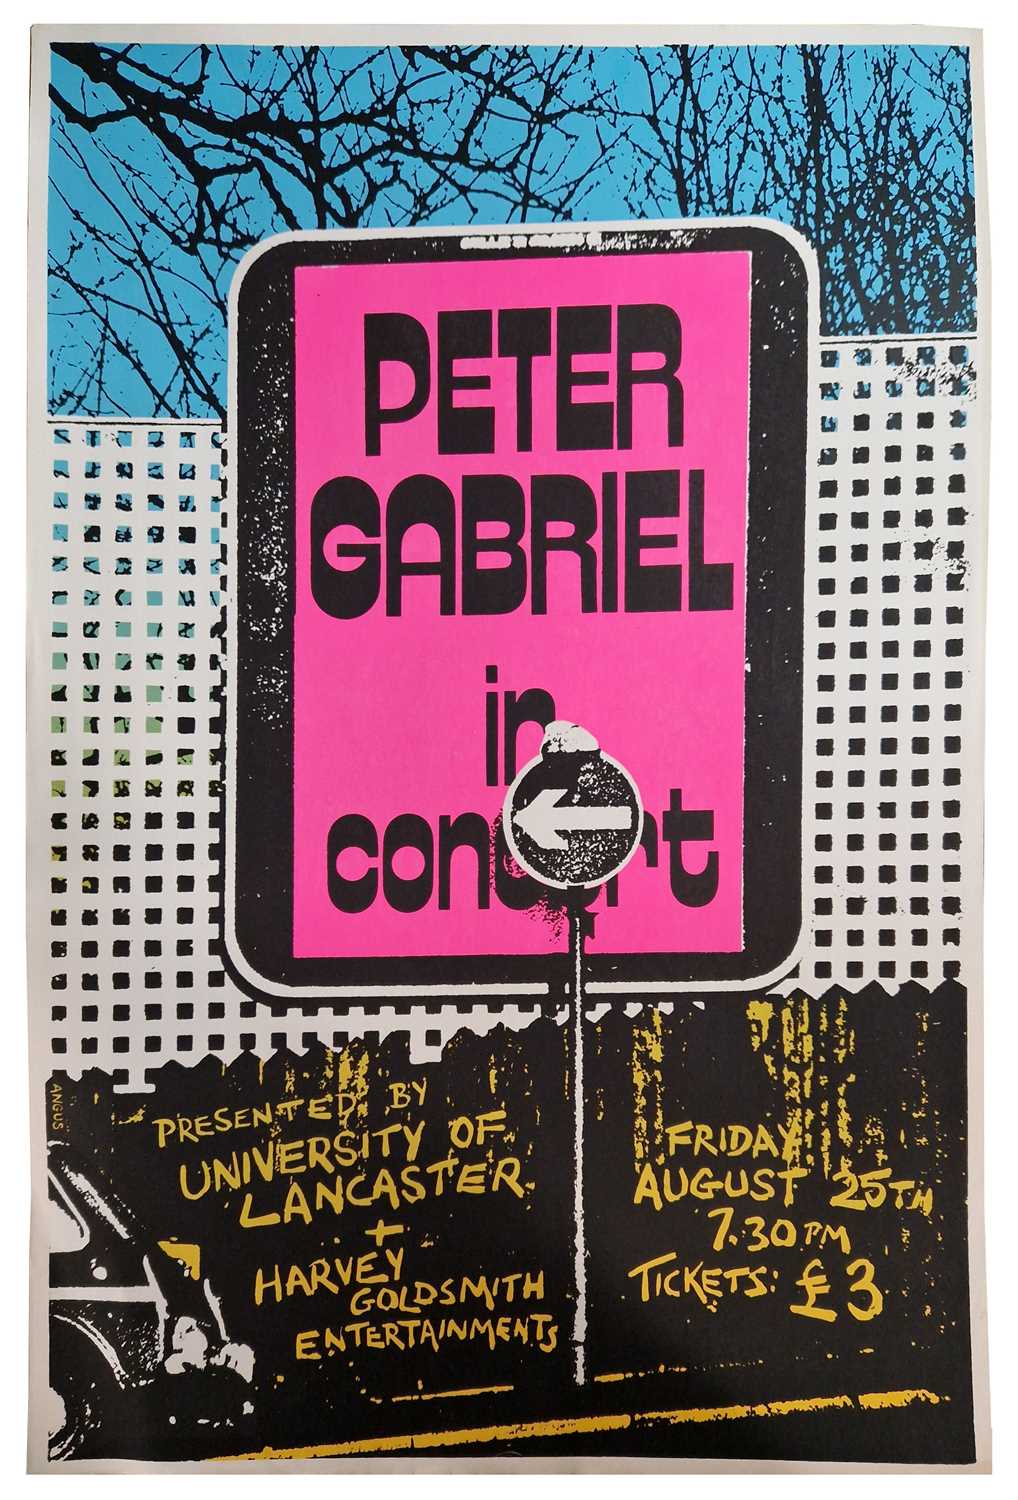 PETER
GABRIEL
in
concert
ANGUS
PRESENTED BY
UNIVERSITY OF
LANCASTER
+
HARVEY
GOLDSMITH
ENTERTAINMENTS
FRIDAY
AUGUST 25TH
7.30 PM
TICKETS: £3